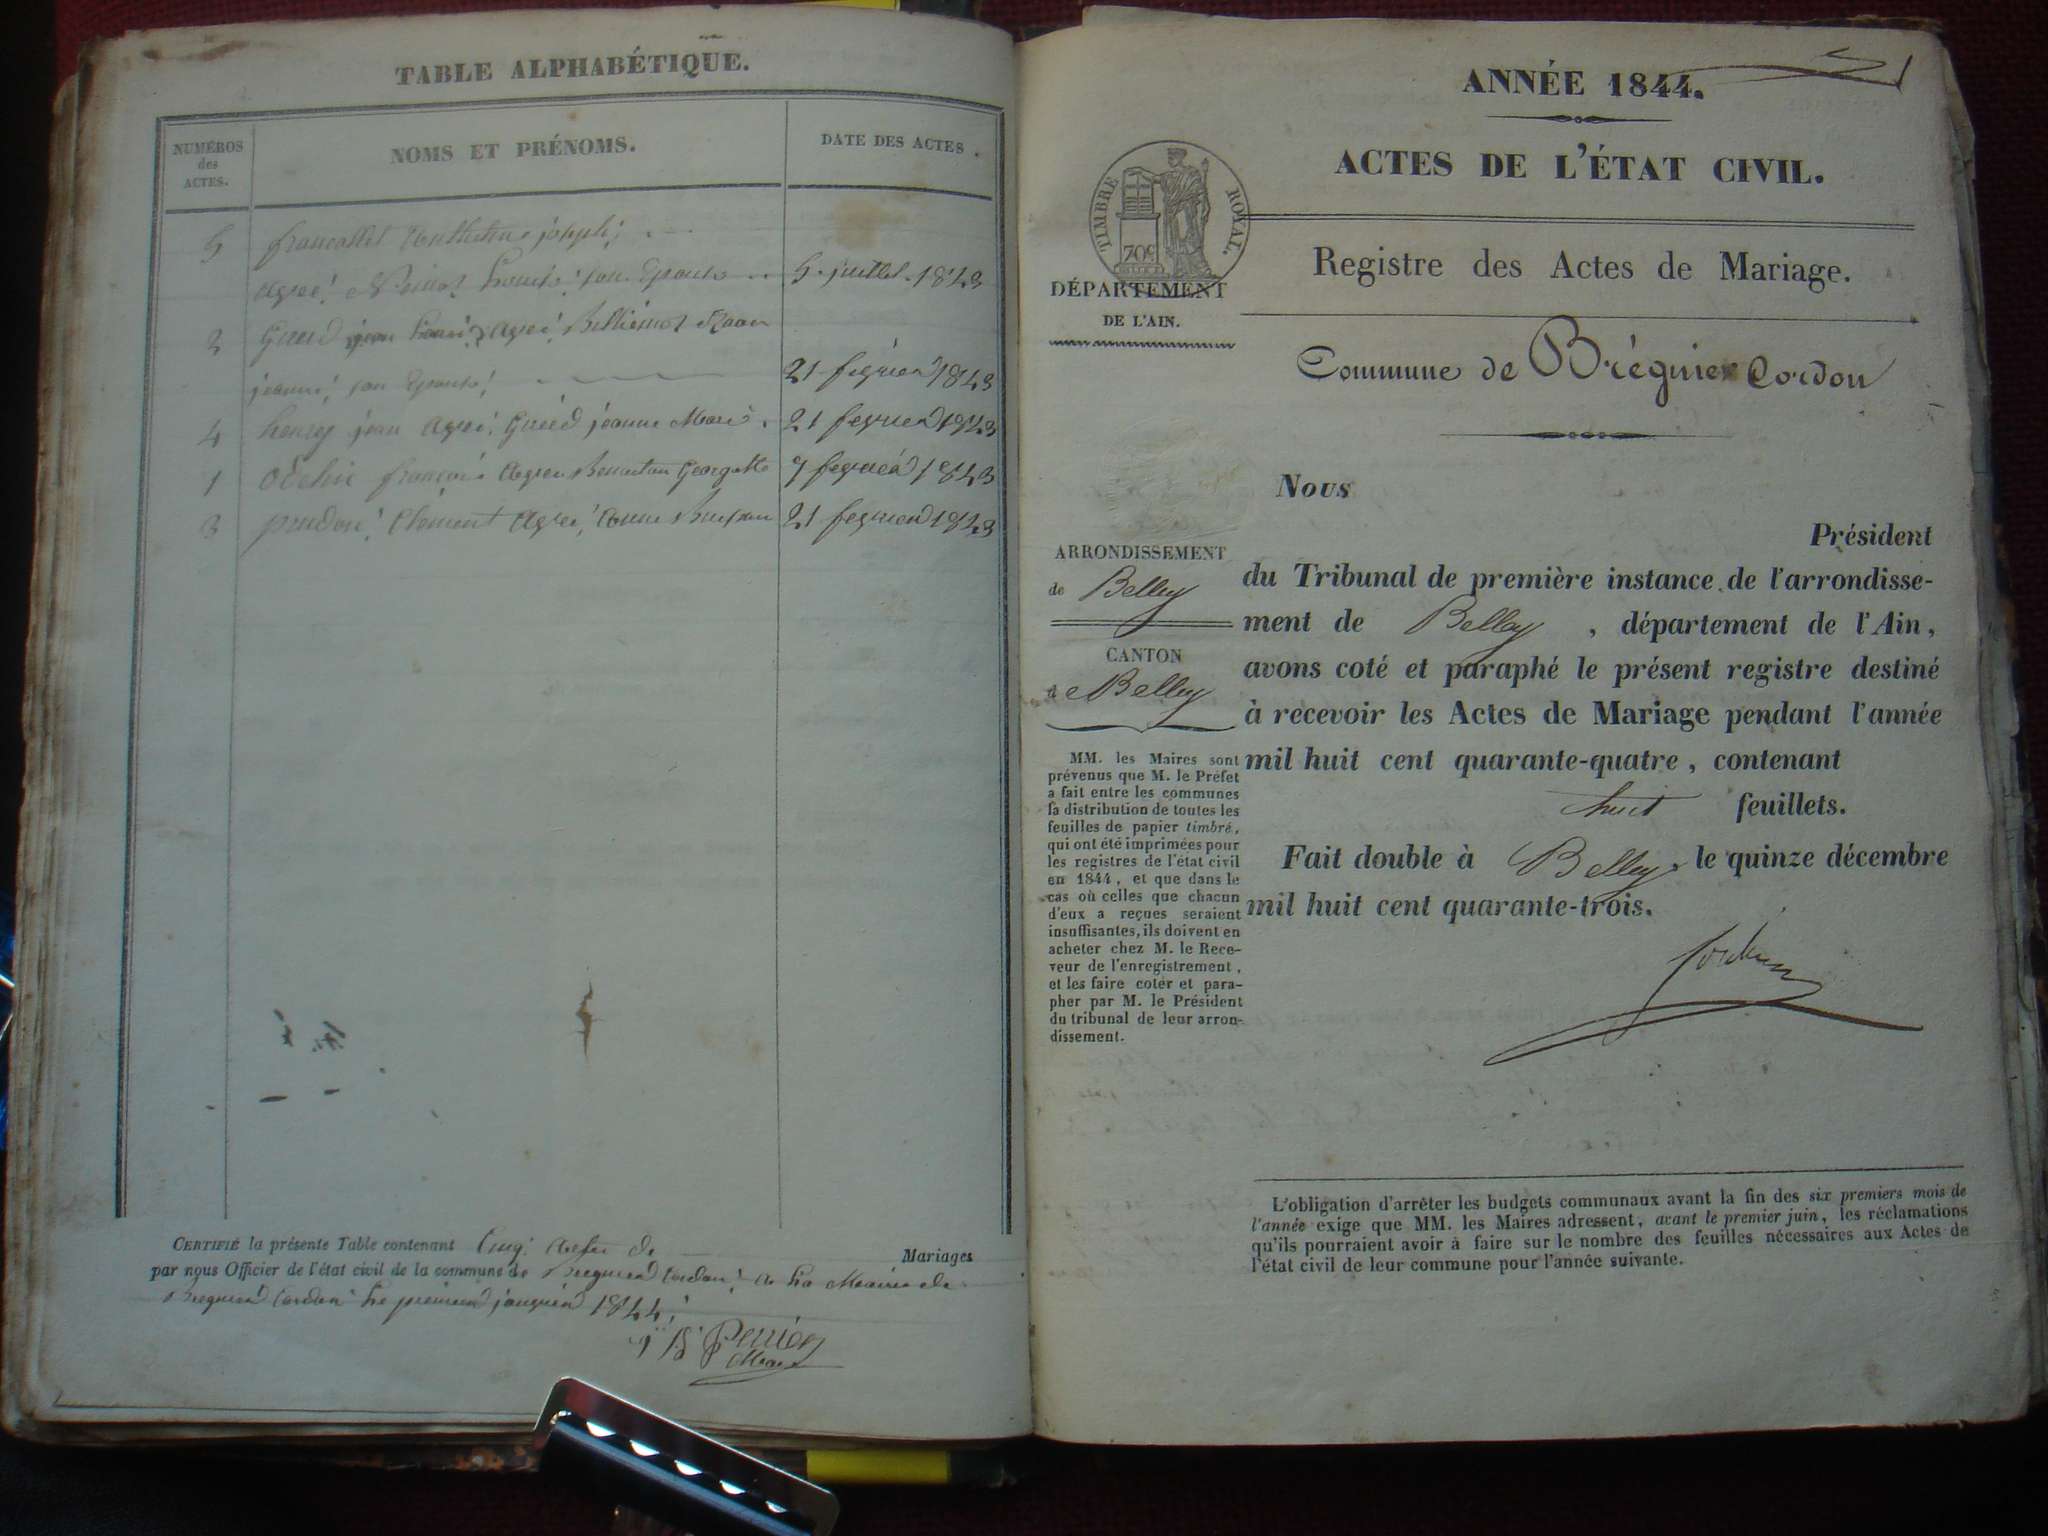 TABLE ALPHABÉTIQUE.
NUMÉROS
des
ACTES.
NOMS ET PRÉNOMS.
DATE DES ACTES.
5 francallet Anthelme joseph
son Epouse 5 juillet 1843
2
jeanne son Epouse 21 fevrier 1843
4 henry jean Avec jeanne Marie 21 fevrier 1843
1 françois Avec Georgette 7 fevrier 1843
3 prudon Clément Avec 21 fevrier 1843
CERTIFIÉ la présente Table contenant Cinq Actes de Mariages
par nous Officier de l'état civil de la commune de Bregnier Cordon a La Mairie de
Bregnier Cordon Le premier janvier 1844
Perrier
Maire
1
ANNÉE 1844.
ACTES DE L'ÉTAT CIVIL.
TIMBRE ROYAL.
70c
Registre des Actes de Mariage.
DÉPARTEMENT
DE L'AIN.
Commune de Brégnier Cordon
Nous
Président
du Tribunal de première instance de l'arrondisse-
ment de Belley, département de l'Ain,
avons coté et paraphé le présent registre destiné
à recevoir les Actes de Mariage pendant l'année
mil huit cent quarante-quatre, contenant
huit feuillets.
Fait double à Belley le quinze décembre
mil huit cent quarante-trois.
ARRONDISSEMENT
de Belley
CANTON
de Belley
MM. les Maires sont
prévenus que M. le Préfet
a fait entre les communes
la distribution de toutes les
feuilles de papier timbré,
qui ont été imprimées pour
les registres de l'état civil
en 1844, et que dans le
cas où celles que chacun
d'eux a reçues seraient
insuffisantes, ils doivent en
acheter chez M. le Rece-
veur de l'enregistrement,
et les faire coter et para-
pher par M. le Président
du tribunal de leur arron-
dissement.
L'obligation d'arrêter les budgets communaux avant la fin des six premiers mois de
l'année exige que MM. les Maires adressent, avant le premier juin, les réclamations
qu'ils pourraient avoir à faire sur le nombre des feuilles nécessaires aux Actes de
l'état civil de leur commune pour l'année suivante.